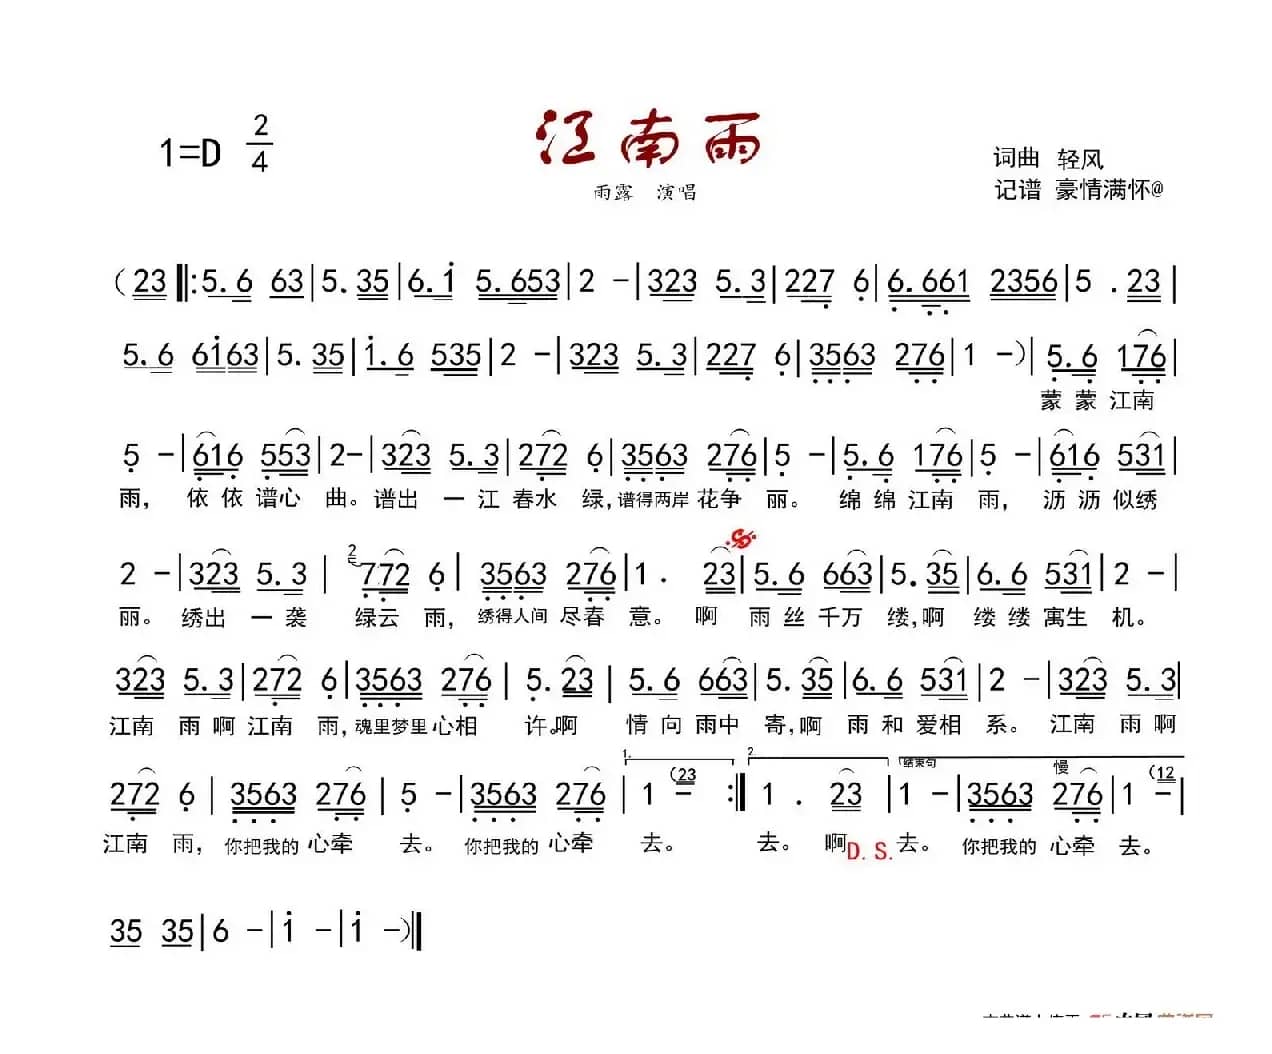 江南雨
1=D 2/4
雨露 演唱
词曲 轻风
记谱 豪情满怀@
（23 ‖:5.6 63|5.35|6.i 5.653|2 -|323 5.3|227 6|6.661 2356|5 .23|
5.6 6i63|5.35|i.6 535|2 -|323 5.3|227 6|3563 276|1 -）|5.6 176|
蒙蒙江南
5 -|616 553|2-|323 5.3|272 6|3563 276|5 -|5.6 176|5 -|616 531|
雨，依依谱心曲。谱出一江春水绿，谱得两岸花争丽。绵绵江南雨，沥沥似绣
2 -|323 5.3|2 772 6|3563 276|1 . 23|5.6 663|5.35|6.6 531|2 -|
丽。绣出一袭绿云雨，绣得人间尽春意。啊雨丝千万缕，啊缕缕寓生机。
323 5.3|272 6|3563 276|5.23|5.6 663|5.35|6.6 531|2 -|323 5.3|
江南雨啊江南雨，魂里梦里心相许。啊情向雨中寄，啊雨和爱相系。江南雨啊
1. 2. 结束句 慢
272 6|3563 276|5 -|3563 276|1 -（23:‖1 . 23|1 -|3563 276|1 -（12|
江南雨，你把我的心牵去。你把我的心牵去。去。啊D.S.去。你把我的心牵去。
35 35|6 -|i -|i -）‖